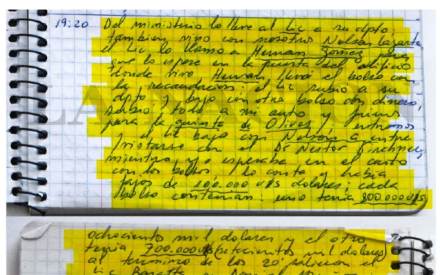 19:20 Del ministerio lo lleve al Lic a su dpto,
tambien vino con nosotros Nelson Lazarte,
el Lic lo llamo a Hernan Gomez para
que lo espere en la puerta del edificio
donde vive Hernan llevó el bolso con
la recaudacion; el Lic subio a su
dpto y bajo con otro bolso con dinero,
subio todo a mi auto y fuimos
para la Quinta de Olivos, entramos
el Lic bajo con Nelson a
con el Dr Nestor Kirchner,
mientras yo esperaba en el auto
con los bolsos lo conte y habia
de 100.000 u$s dolares; cada
bolso contenian: uno tenia 800.000 u$s
LA NACION
ochocientos mil dolares y el otro
tenia 700.000 u$s (setecientos mil dolares)
al termino de los 20' salieron
Lic Baratta